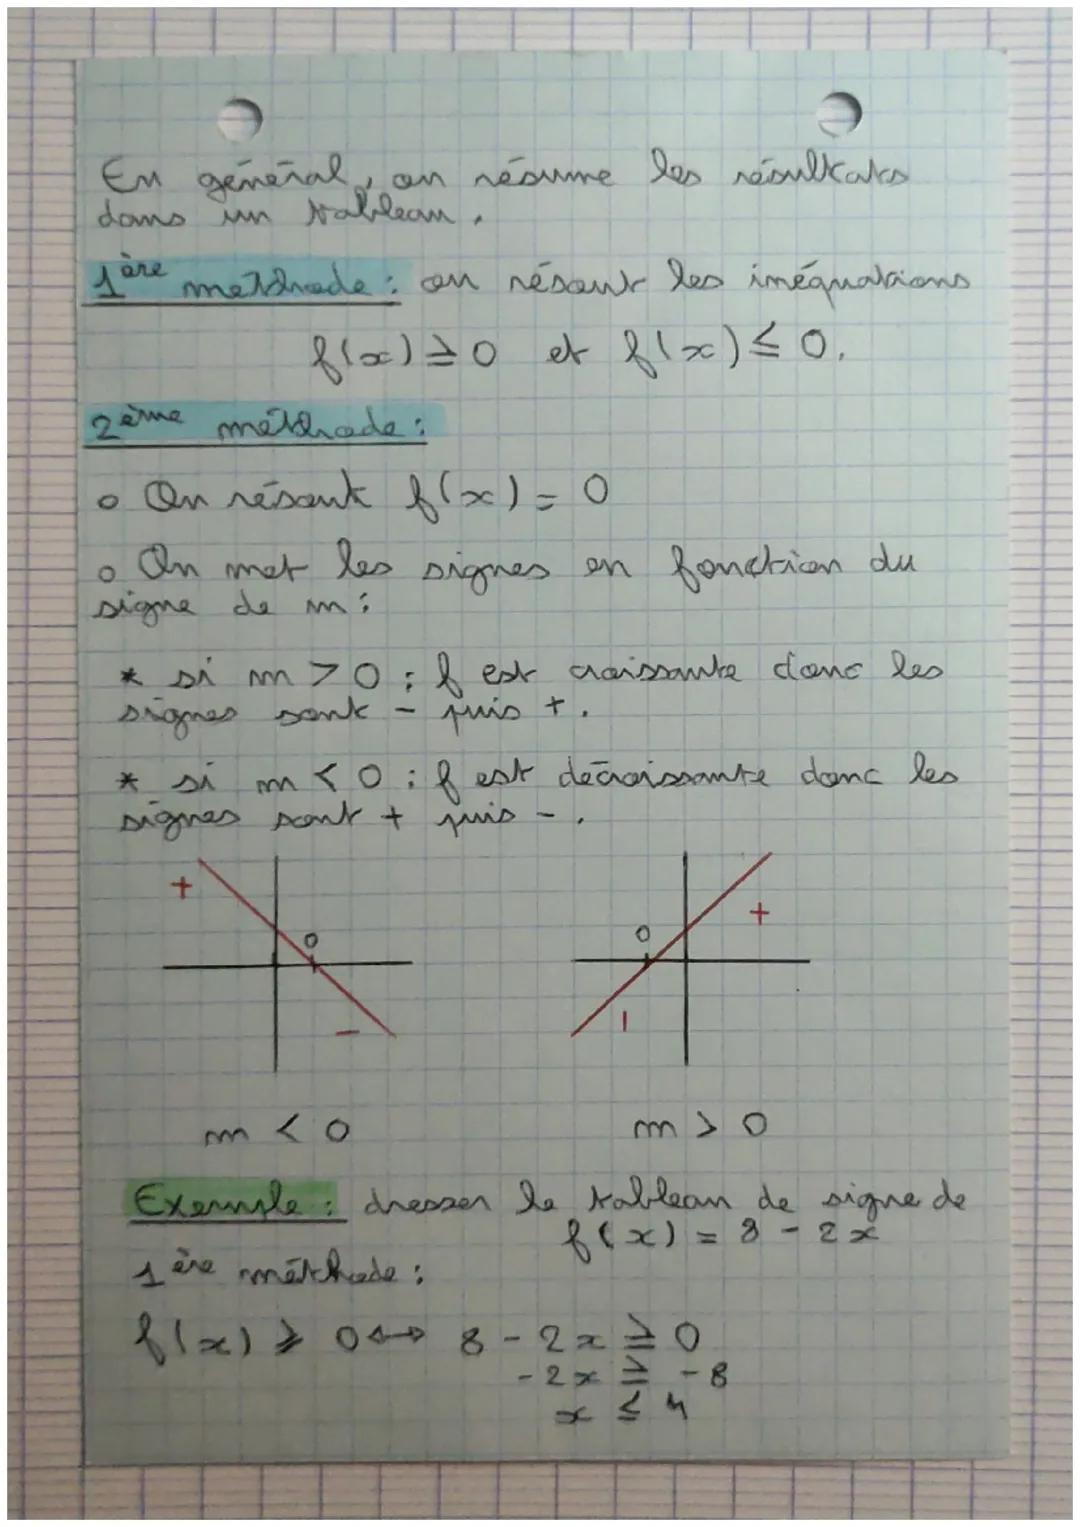 En général, on résume les résultats
dans un tableau.
1ère méthode : on résout les inéquations
f(x) ≥ 0 et f(x) ≤ 0.
2ème méthode :
o On résout f(x) = 0
o On met les signes en fonction du
signe de m :
* si m > 0 : f est croissante donc les
signes sont - puis +.
* si m < 0 : f est décroissante donc les
signes sont + puis -.
+ +
0 0
- -
m < 0 m > 0
Exemple : dresser le tableau de signe de
f(x) = 8 - 2x
1ère méthode :
f(x) ≥ 0 ⇔ 8 - 2x ≥ 0
-2x ≥ -8
x ≤ 4